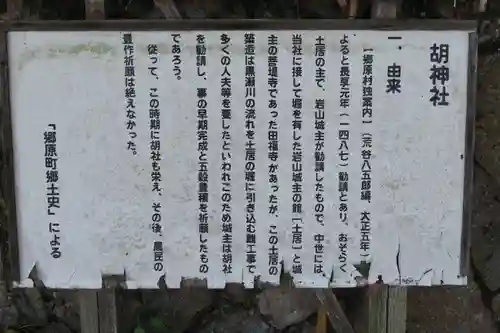 胡神社
一．由来
【郷原村独案内】（荒谷八五郎編、大正五年）
よると長享元年（一四八七）勧請とあり、おそらく
土居の主で、岩山城主が勧請したもので、中世には
当社に接して堀を有した岩山城主の館［土居］と城
主の菩堤寺であった田福寺があったが、この土居の
築造は黒瀬川の流れを土居の堀に引き込む難工事で
多くの人夫等を要したといわれこのため城主は胡社
を勧請し、事の早期完成と五穀豊穣を祈願したもの
であろう。
従って、この時期に胡社も栄え、その後、農民の
豊作祈願は絶えなかった。
「郷原町郷土史」による